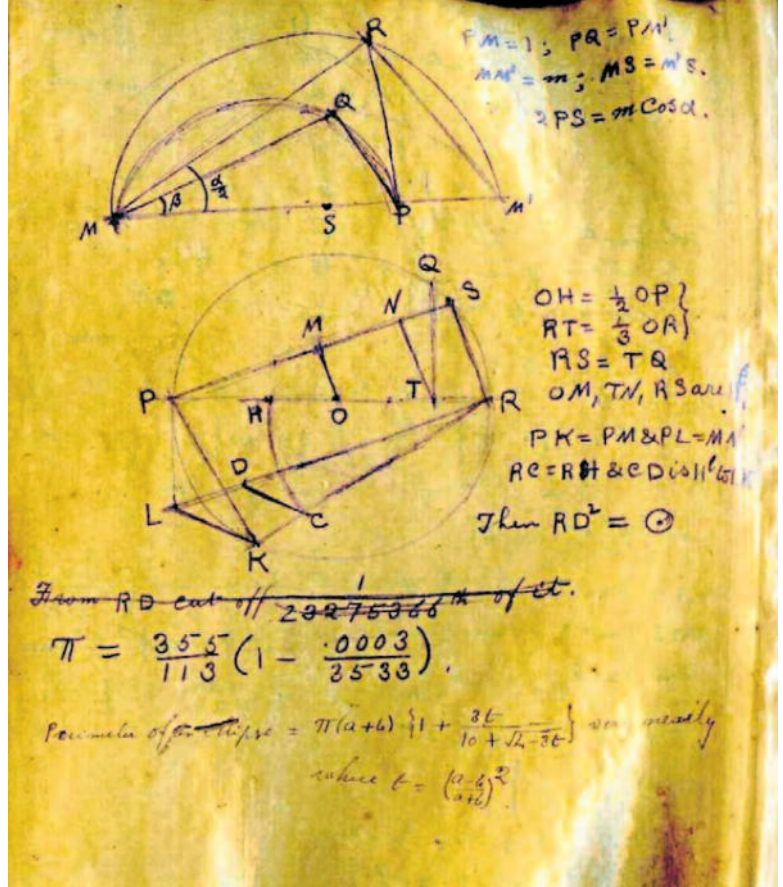 R
PM = 1 ; PQ = PM'
MM' = m ; MS = M'S.
2PS = m Cos α.
Q
β
α/2
M
S
P
M'
Q
S
N
M
P
H
O
T
R
D
L
C
K
OH = 1/2 OP }
RT = 1/3 OR }
RS = TQ
OM, TN, RS are ||l
PK = PM & PL = MN
RC = RH & CD is ||l to LK
Then RD² = ⊙
From RD cut off 1/23275366 th of it.
π = 355/113 (1 - .0003/3533).
Perimeter of ellipse = π(a+b) {1 + 3t/10 + √4-3t} very nearly
where t = (a-b/a+b)²